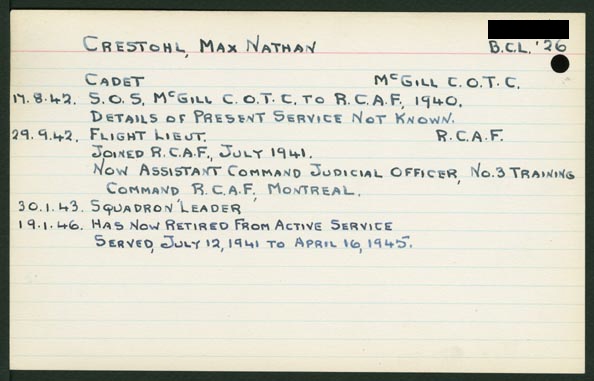 CRESTOHL, MAX NATHAN B.C.L. '26
CADET McGILL C.O.T.C.
17.8.42. S.O.S. McGILL C.O.T.C. TO R.C.A.F., 1940.
DETAILS OF PRESENT SERVICE NOT KNOWN.
29.9.42. FLIGHT LIEUT. R.C.A.F.
JOINED R.C.A.F., JULY 1941.
NOW ASSISTANT COMMAND JUDICIAL OFFICER, NO.3 TRAINING
COMMAND R.C.A.F. MONTREAL.
30.1.43. SQUADRON LEADER
19.1.46. HAS NOW RETIRED FROM ACTIVE SERVICE
SERVED, JULY 12, 1941 TO APRIL 16, 1945.